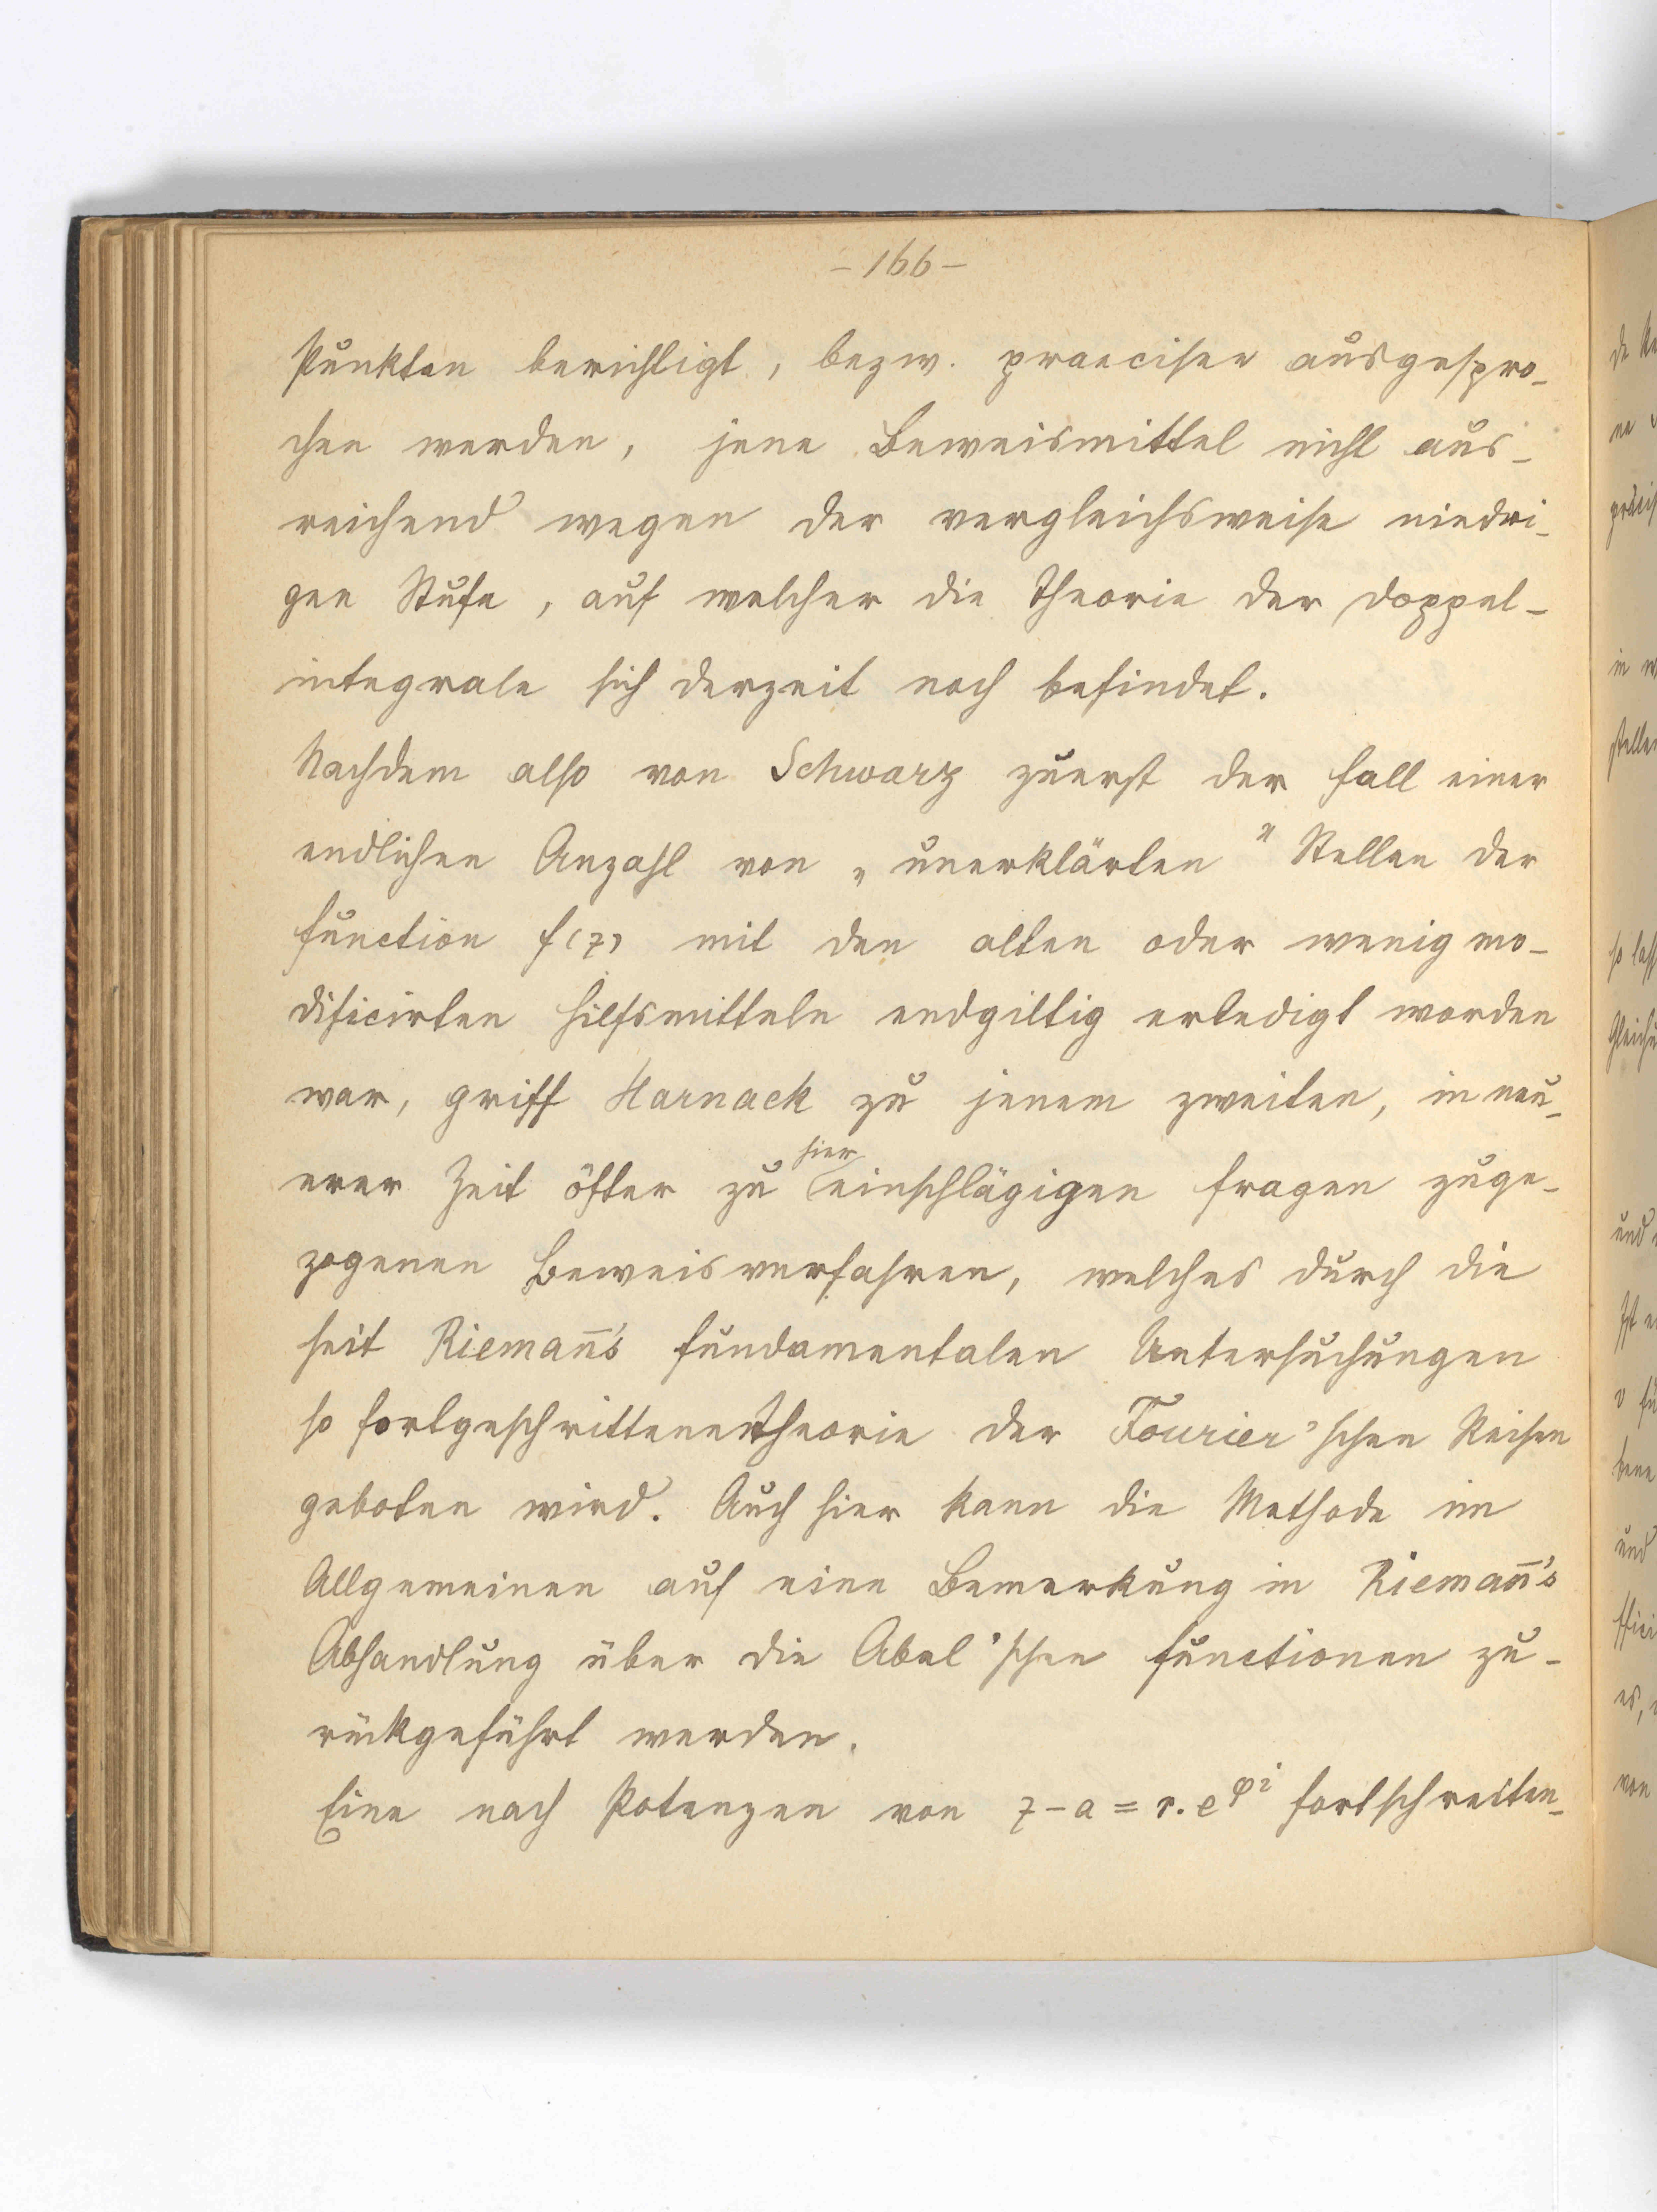 – 166 –
Punkten berichtigt, bezw. praeciser ausgespro-
chen werden, jene Beweismittel nicht aus-
reichend wegen der vergleichsweise niedri-
gen Stufe, auf welcher die Theorie der Doppel-
integrale sich derzeit noch befindet.
Nachdem also von Schwarz zuerst der Fall einer
endlichen Anzahl von „unerklärten" Stellen der
Function f(z) mit den alten oder wenig mo-
dificirten Hilfsmitteln endgiltig erledigt worden
war, griff Harnack zu jenem zweiten, in neu-
erer Zeit öfter zu hier einschlägigen Fragen zuge-
zogenen Beweisverfahren, welches durch die
seit Rieman̄'s fundamentalen Untersuchungen
so fortgeschrittene Theorie der Fourier'schen Reihen
geboten wird. Auch hier kann die Methode im
Allgemeinen auf eine Bemerkung in Rieman̄'s
Abhandlung über die Abel'schen Functionen zu-
rückgeführt werden.
Eine nach Potenzen von z-a=r.e^{φi} fortschreiten-